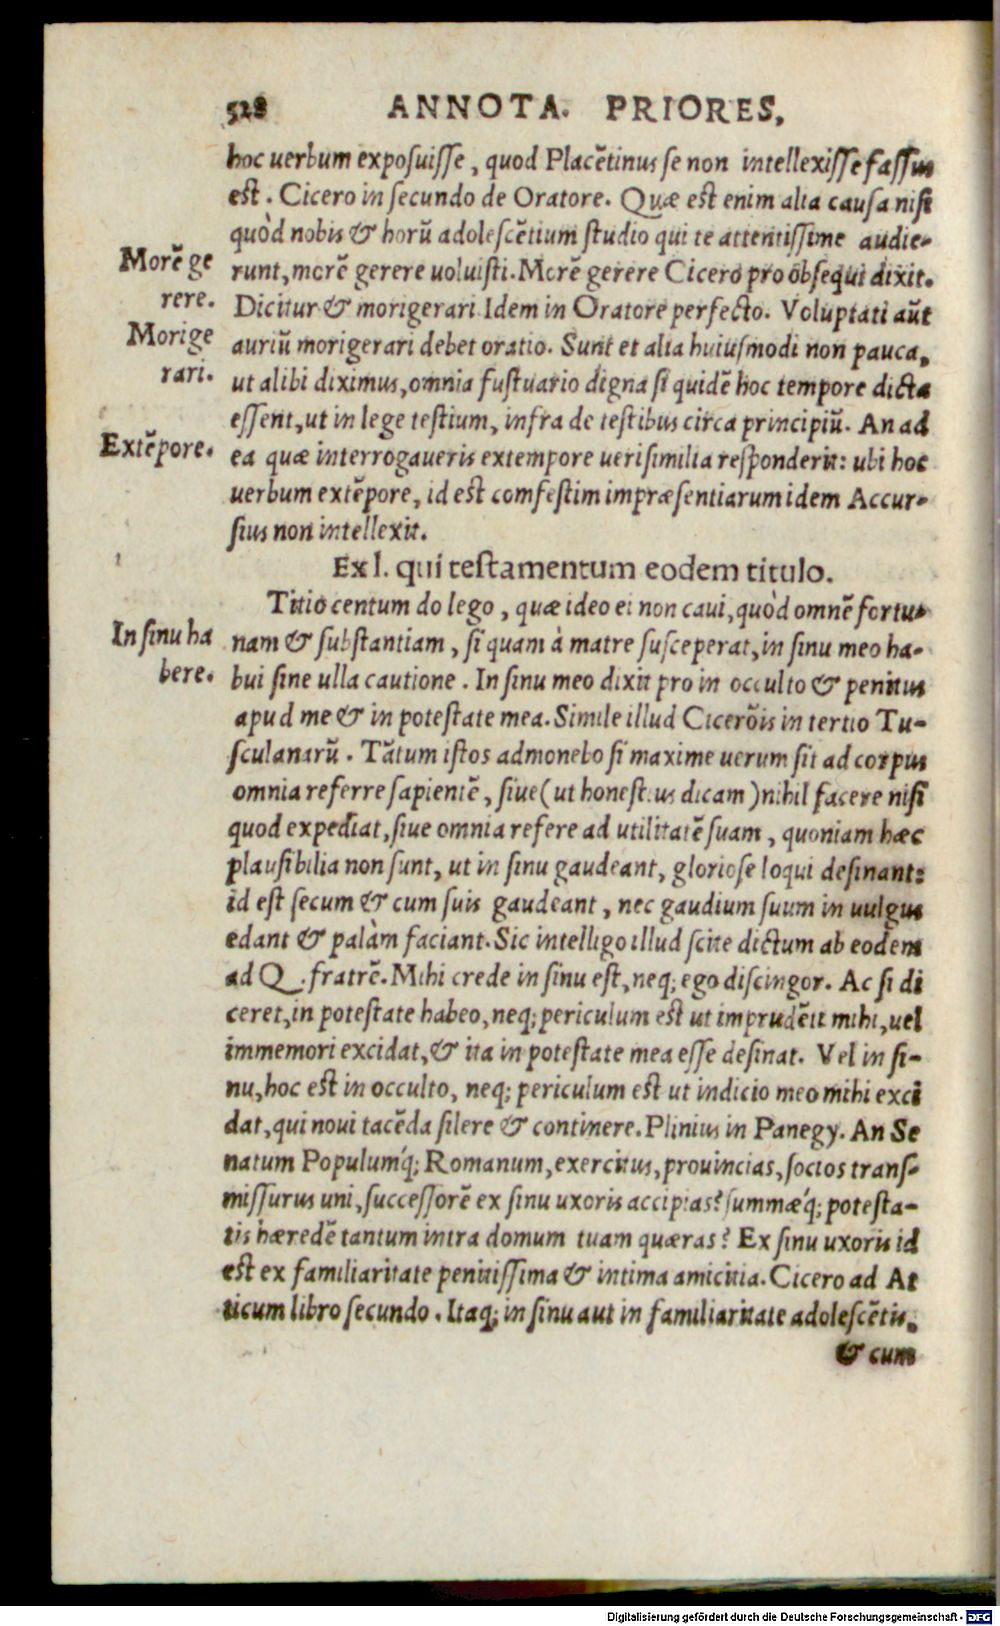 528 ANNOTA. PRIORES,
hoc uerbum exposuisse, quod Placētinus se non intellexisse fassus
est. Cicero in secundo de Oratore. Quæ est enim alia causa nisi
quòd nobis & horū adolescētium studio qui te attentissime audie-
Morē ge
runt, morē gerere uoluisti. Morē gerere Cicero pro obsequi dixit.
rere.
Dicitur & morigerari Idem in Oratore perfecto. Voluptati aūt
Morige
auriū morigerari debet oratio. Sunt et alia huiusmodi non pauca,
rari.
ut alibi diximus, omnia fustuario digna si quidē hoc tempore dicta
essent, ut in lege testium, infra de testibus circa principiū. An ad
Extēpore.
ea quæ interrogaueris extempore uerisimilia responderit: ubi hoc
uerbum extēpore, id est comfestim impræsentiarum idem Accur-
sius non intellexit.
Ex l. qui testamentum eodem titulo.
Titio centum do lego, quæ ideo ei non caui, quòd omnē fortu-
In sinu ha
nam & substantiam, si quam à matre susceperat, in sinu meo ha-
bere.
bui sine ulla cautione. In sinu meo dixit pro in occulto & penitus
apud me & in potestate mea. Simile illud Cicerōis in tertio Tu-
sculanarū. Tātum istos admonebo si maxime uerum sit ad corpus
omnia referre sapientē, siue (ut honestius dicam) nihil facere nisi
quod expediat, siue omnia refere ad utilitatē suam, quoniam hæc
plausibilia non sunt, ut in sinu gaudeant, gloriose loqui desinant:
id est secum & cum suis gaudeant, nec gaudium suum in uulgus
edant & palàm faciant. Sic intelligo illud scite dictum ab eodem
ad Q. fratrē. Mihi crede in sinu est, neq; ego discingor. Ac si di
ceret, in potestate habeo, neq; periculum est ut imprudēti mihi, uel
immemori excidat, & ita in potestate mea esse desinat. Vel in si-
nu, hoc est in occulto, neq; periculum est ut indicio meo mihi exci
dat, qui noui tacēda silere & continere. Plinius in Panegy. An Se
natum Populumq́; Romanum, exercitus, prouincias, socios trans-
missurus uni, successorē ex sinu uxoris accipias? summæq́; potesta-
tis hæredē tantum intra domum tuam quæras? Ex sinu uxoris id
est ex familiaritate penitissima & intima amicitia. Cicero ad At
ticum libro secundo. Itaq; in sinu aut in familiaritate adolescētis,
& cum
Digitalisierung gefördert durch die Deutsche Forschungsgemeinschaft - DFG